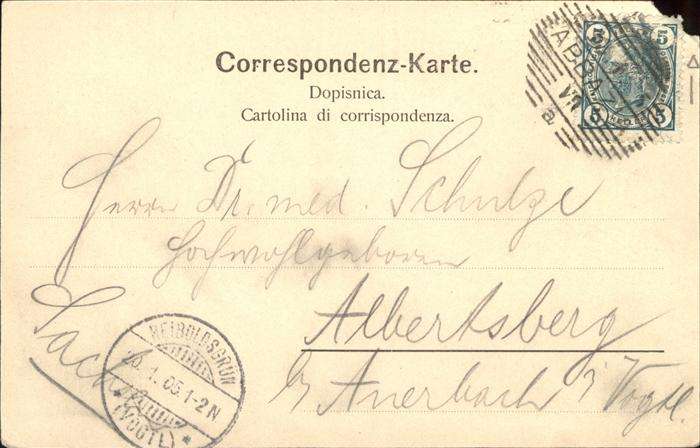 Correspondenz-Karte.
Dopisnica.
Cartolina di corrispondenza.
5 5
5 5
ABBAZIA
a
Herrn Dr. med. Schulze
Hochwohlgeboren
Albertsberg
b/ Auerbach i Vogtl.
Sachsen
REIBOLDSGRÜN
26.1.05.1-2N
* (VOGTL) *